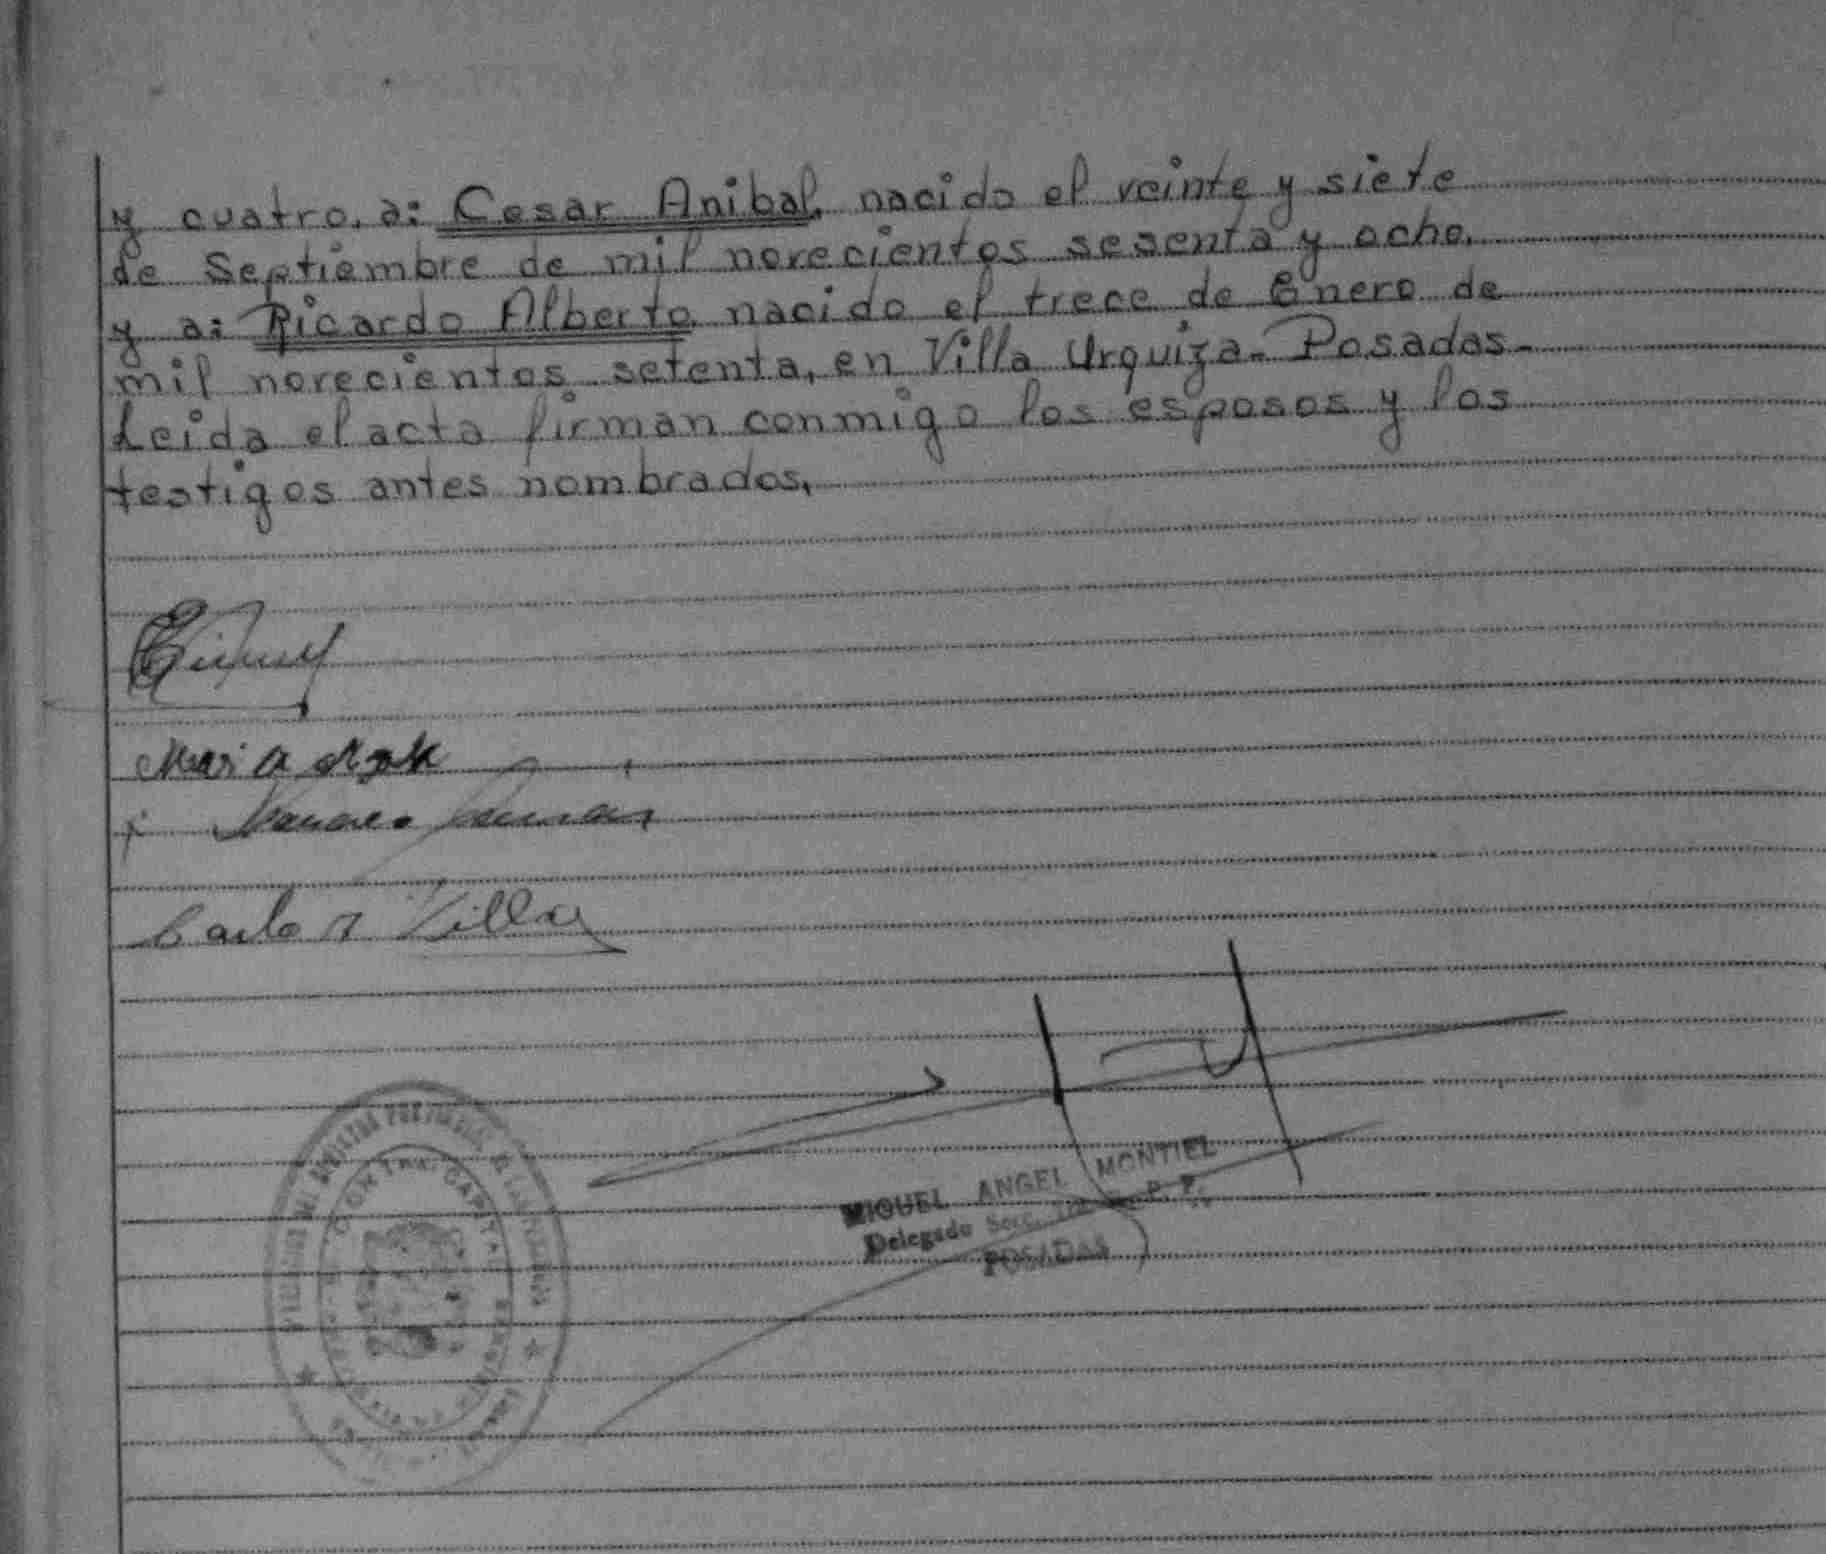 y cuatro, a: Cesar Anibal, nacido el veinte y siete
de Septiembre de mil novecientos sesenta y ocho,
y a: Ricardo Alberto, nacido el trece de Enero de
mil novecientos setenta, en Villa Urquiza - Posadas -
Leida el acta firman conmigo los esposos y los
testigos antes nombrados,
Maria
Carlos Villa
MIGUEL ANGEL MONTIEL
Delegado Secc. P. P.
POSADAS
CAPITAL